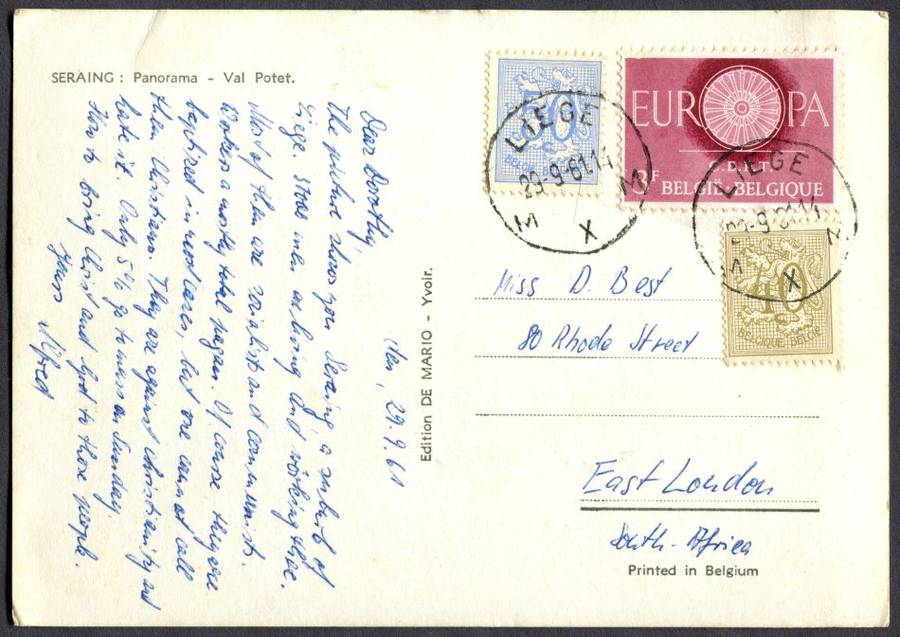 SERAING : Panorama - Val Potet.
den, 29.9.61
Dear Dorothy,
The picture shows you Seraing a suburb of
Liege. 37000 men are living and working there.
Most of them are socialists and communists.
Workers mostly total pagan. Of course they are
baptized in most cases, but one cannot call
them Christians. They are against christianity and
hate it. Only 5% go to mass on Sunday.
How to bring Christ and God to those people.
Yours Alfred
Edition DE MARIO - Yvoir.
50
BELGIE
EUROPA
C.E.P.T.
3F BELGIË-BELGIQUE
LIEGE
29-9-61.14
M X M
LIEGE
29-9-61.14
X
40
BELGIQUE BELGIË
Miss D. Best
80 Rhode Street
East London
South-Africa
Printed in Belgium